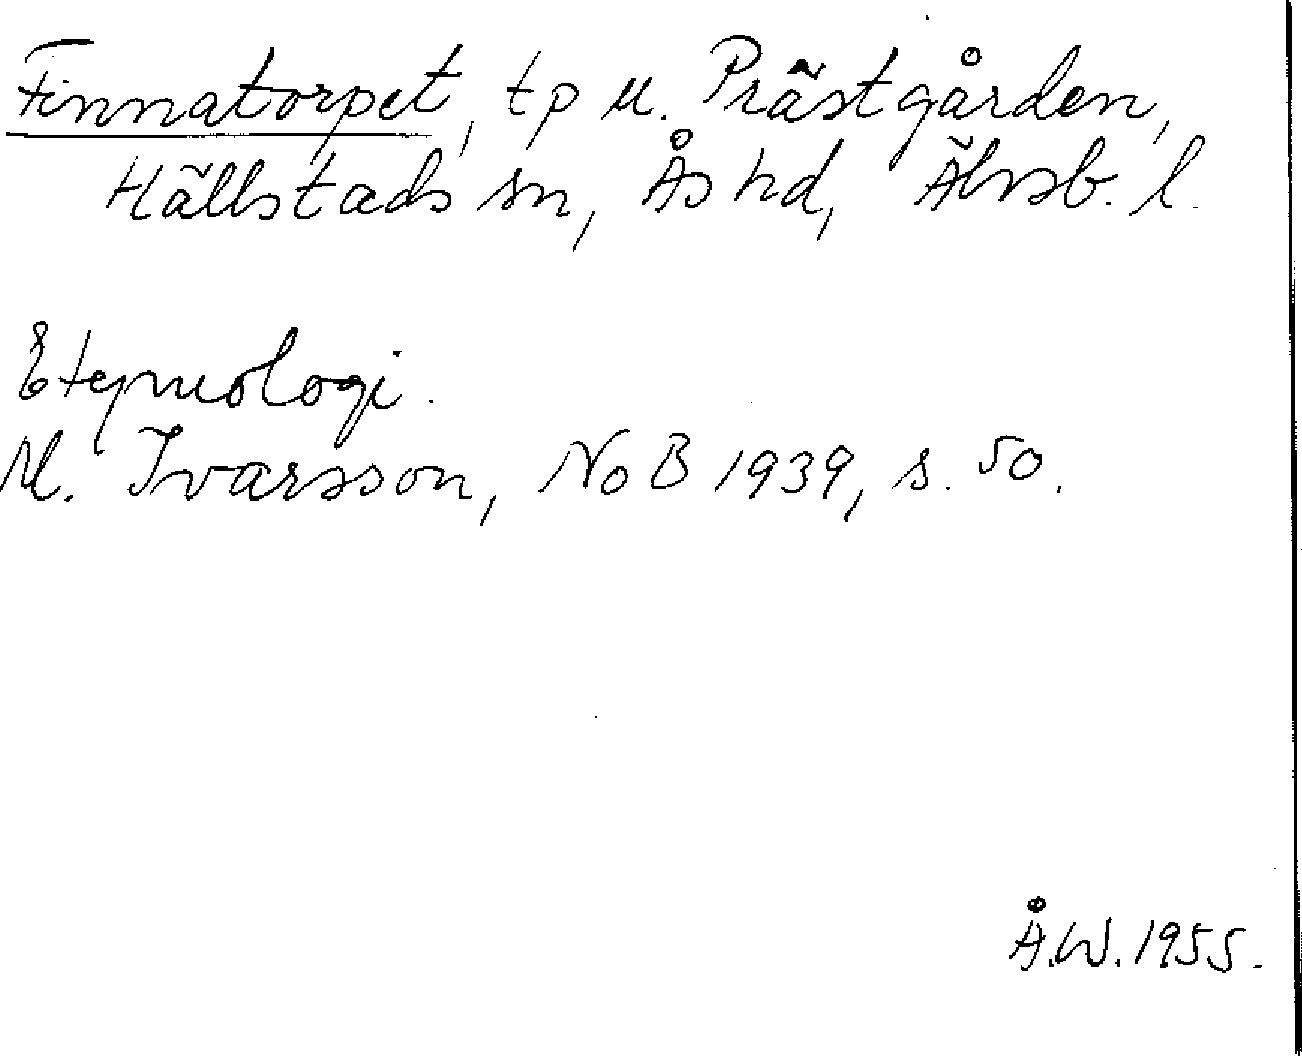 Finnatorpet, tp u. Prästgården,
Hällstads sn, Ås hd, Älvsb. l.
Etymologi.
M. Ivarsson, NoB 1939, s. 50.
Å.W. 1955.